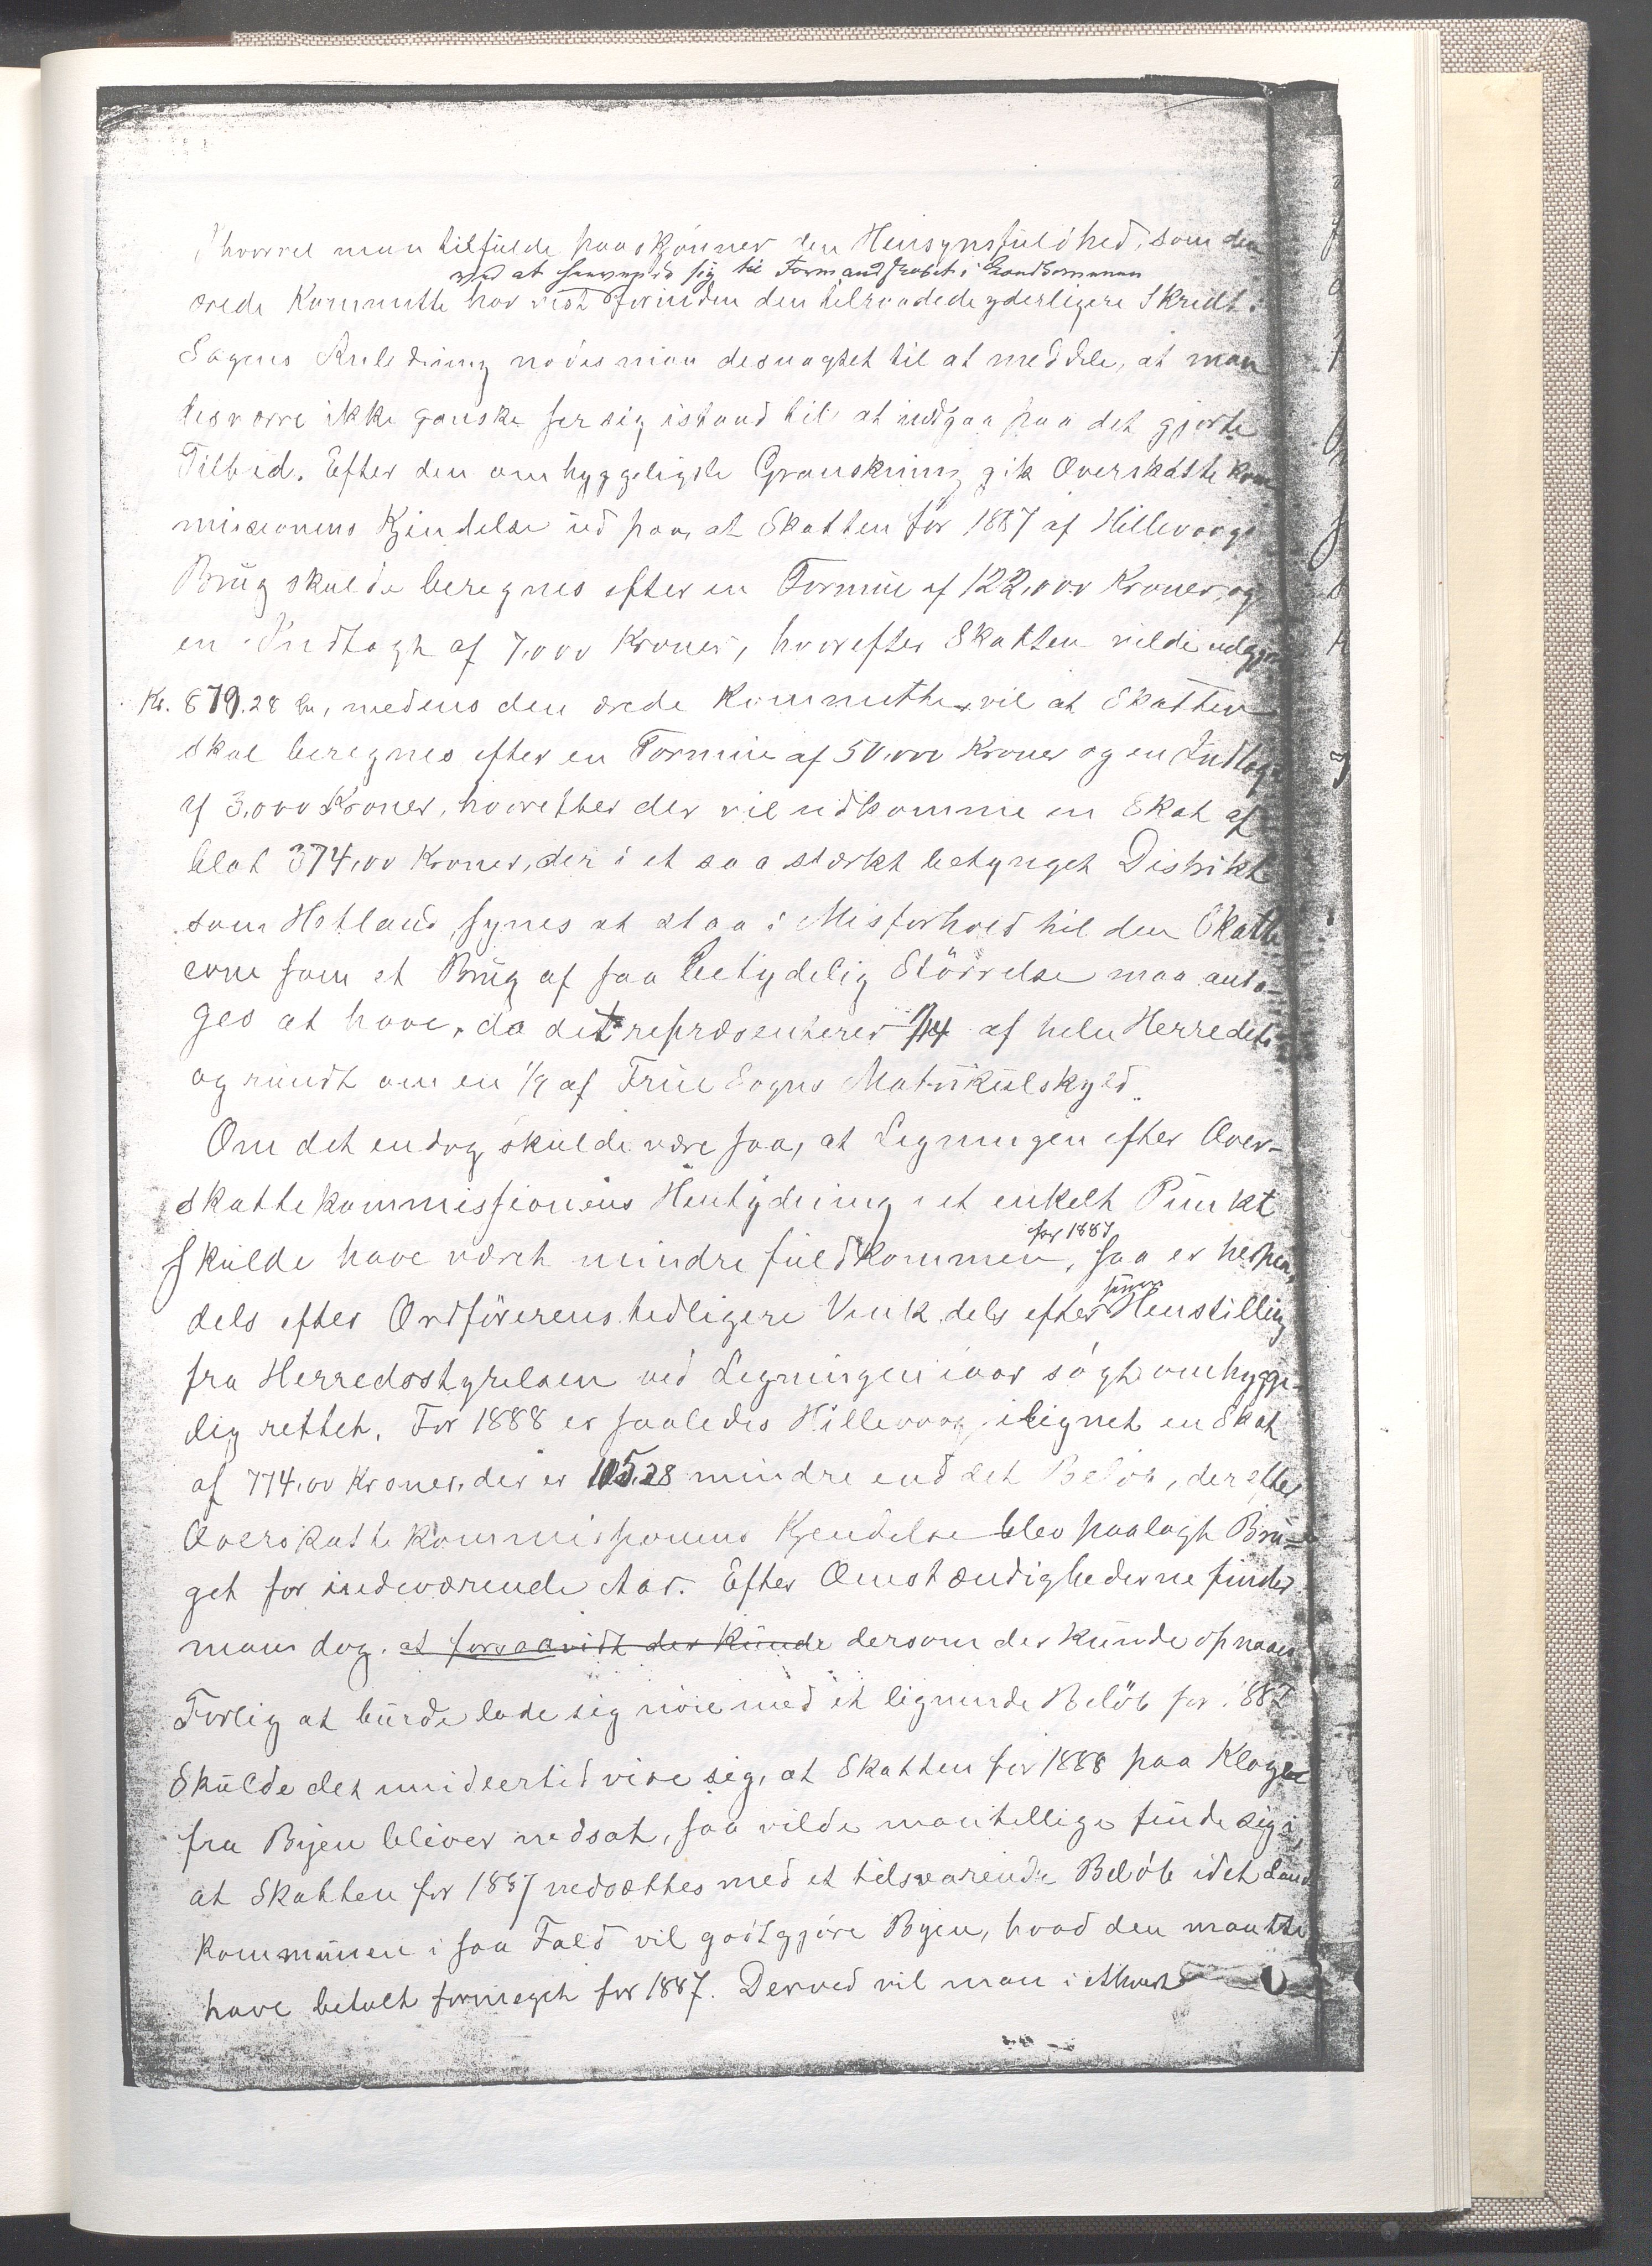 Ihvorvel man tilfulde paaskjønner den Hensynsfuldhed, som den
ved at henvende sig til Formandskabet i Landkommunen
ærede Kommitte har vist forinden den tilraadede yderligere Skridt i
Sagens Anledning nødes man desuagtet til at meddele, at man
desværre ikke ganske ser sig istand til at indgaa paa det gjorte
Tilbud. Efter den omhyggeligste Granskning gik Overskattekom
missionens Kjendelse ud paa, at Skatten for 1887 af Hillevaags
Brug skulde beregnes efter en Formue af 122,000 Kroner, og
en Indtægt af 7,000 Kroner, hvorefter Skatten vilde udgjøre
Kr. 879.28 Øre, medens den ærede Kommitte vil at Skatten
skal beregnes efter en Formue af 50,000 Kroner og en Indtægt
af 3,000 Kroner, hvorefter der vil udkomme en Skat af
blot 374,00 Kroner, der i et saa stærkt betynget Distrikt
som Hetland synes at staa i Misforhold til den Skatte
evne som et Brug af saa betydelig Størrelse maa anta-
ges at have, da det repræsenterer 1/14 af hele Herredets
og rundt om en 1/9 af Frue Sogns Matrikulskyld.
Om det endog skulde være saa, at Ligningen efter Over-
skattekommissionens Hentydning i et enkelt Punkt
for 1887
skulde have været mindre fuldkommen, saa er herpaa,
senere
dels efter Ordførerens tidligere Vink dels efter Henstilling
fra Herredsstyrelsen ved Ligningen iaar søgt omhygge-
lig rettet. For 1888 er saaledes Hillevaag ilignet en Skat
af 774,00 Kroner, der er 105.28 mindre end det Beløb, der efter
Overskattekommissionens Kjendelse blev paalagt Bru-
get for indeværende Aar. Efter Omstændighederne finder
man dog. at forsaavidt der kunde dersom der kunde opnaaes
Forlig at burde lade sig nøie med et lignende Beløb for 1887
Skulde det imidlertid vise sig, at Skatten for 1888 paa Klage
fra Byen bliver nedsat, saa vilde man tillige finde sig i,
at Skatten for 1887 nedsættes med et tilsvarende Beløb idet Land
kommunen i saa Fald vil godtgjøre Byen, hvad den maatte
have betalt formeget for 1887. Derved vil man i